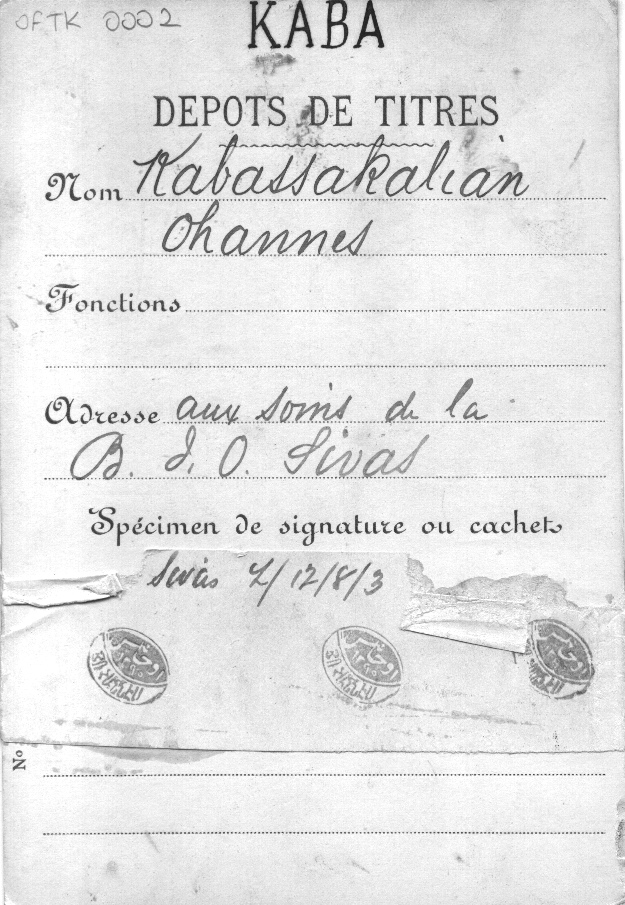 OFTK 0002
KABA
DEPOTS DE TITRES
Nom Kabassakalian
Ohannes
Fonctions
Adresse aux soins de la
B. I. O. Sivas
Spécimen de signature ou cachet
Sivas 7/12/8/3
No